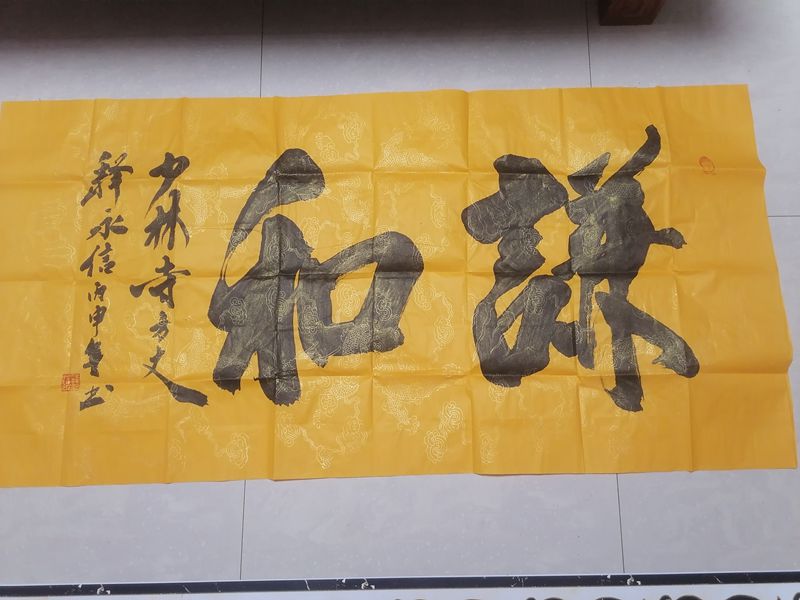 謙和
少林寺方丈
釋永信丙申年书